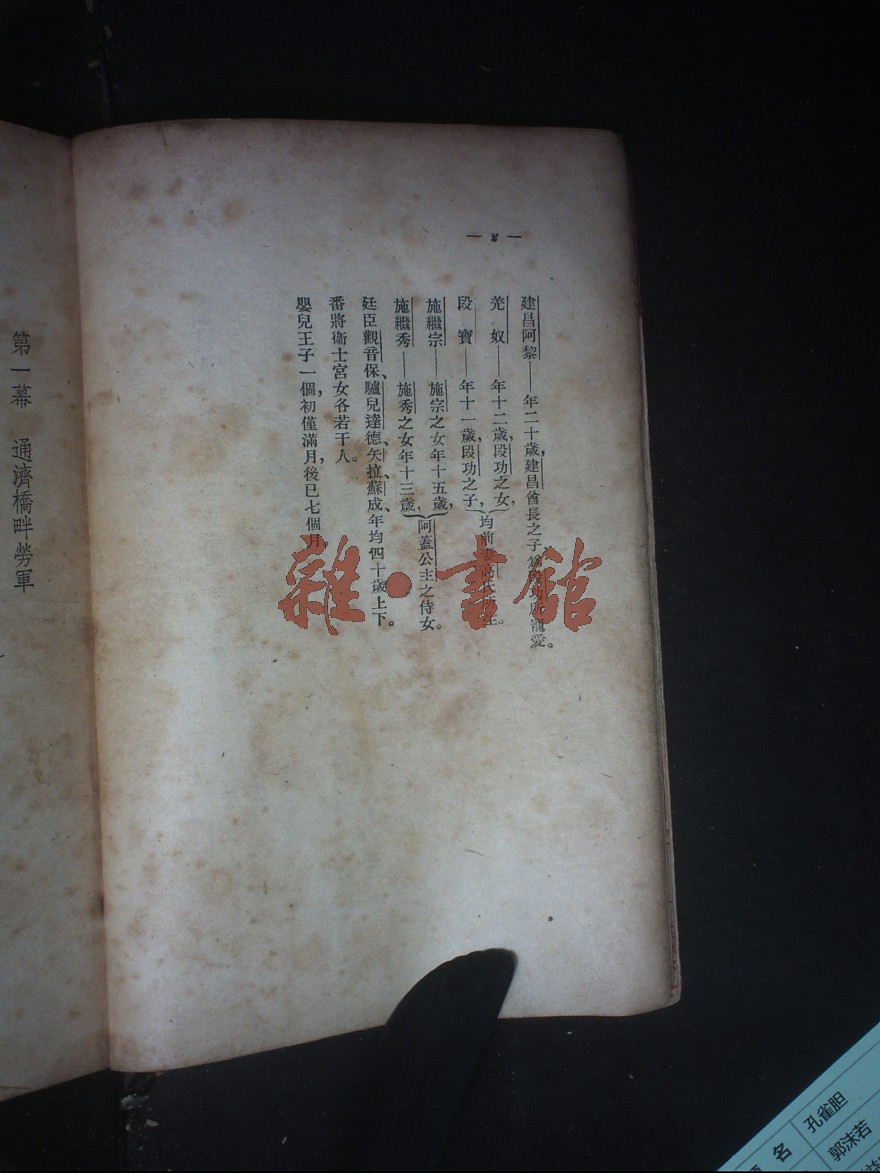 建昌阿黎——年二十歲，建昌酋長之子
寵愛。
羌　奴——年十二歲，段功之女，
段　寶——年十一歲，段功之子，
均前
施繼宗——施宗之女年十五歲，
施繼秀——施秀之女年十三歲，
阿蓋公主之侍女。
廷臣觀音保、驢兒達德、矢拉、蘇成、年均四十歲上下。
番將衞士宮女各若干人。
嬰兒王子一個，初僅滿月，後已七個月。
第一幕　通濟橋畔勞軍
雜·書館
名
孔雀胆
郭沫若